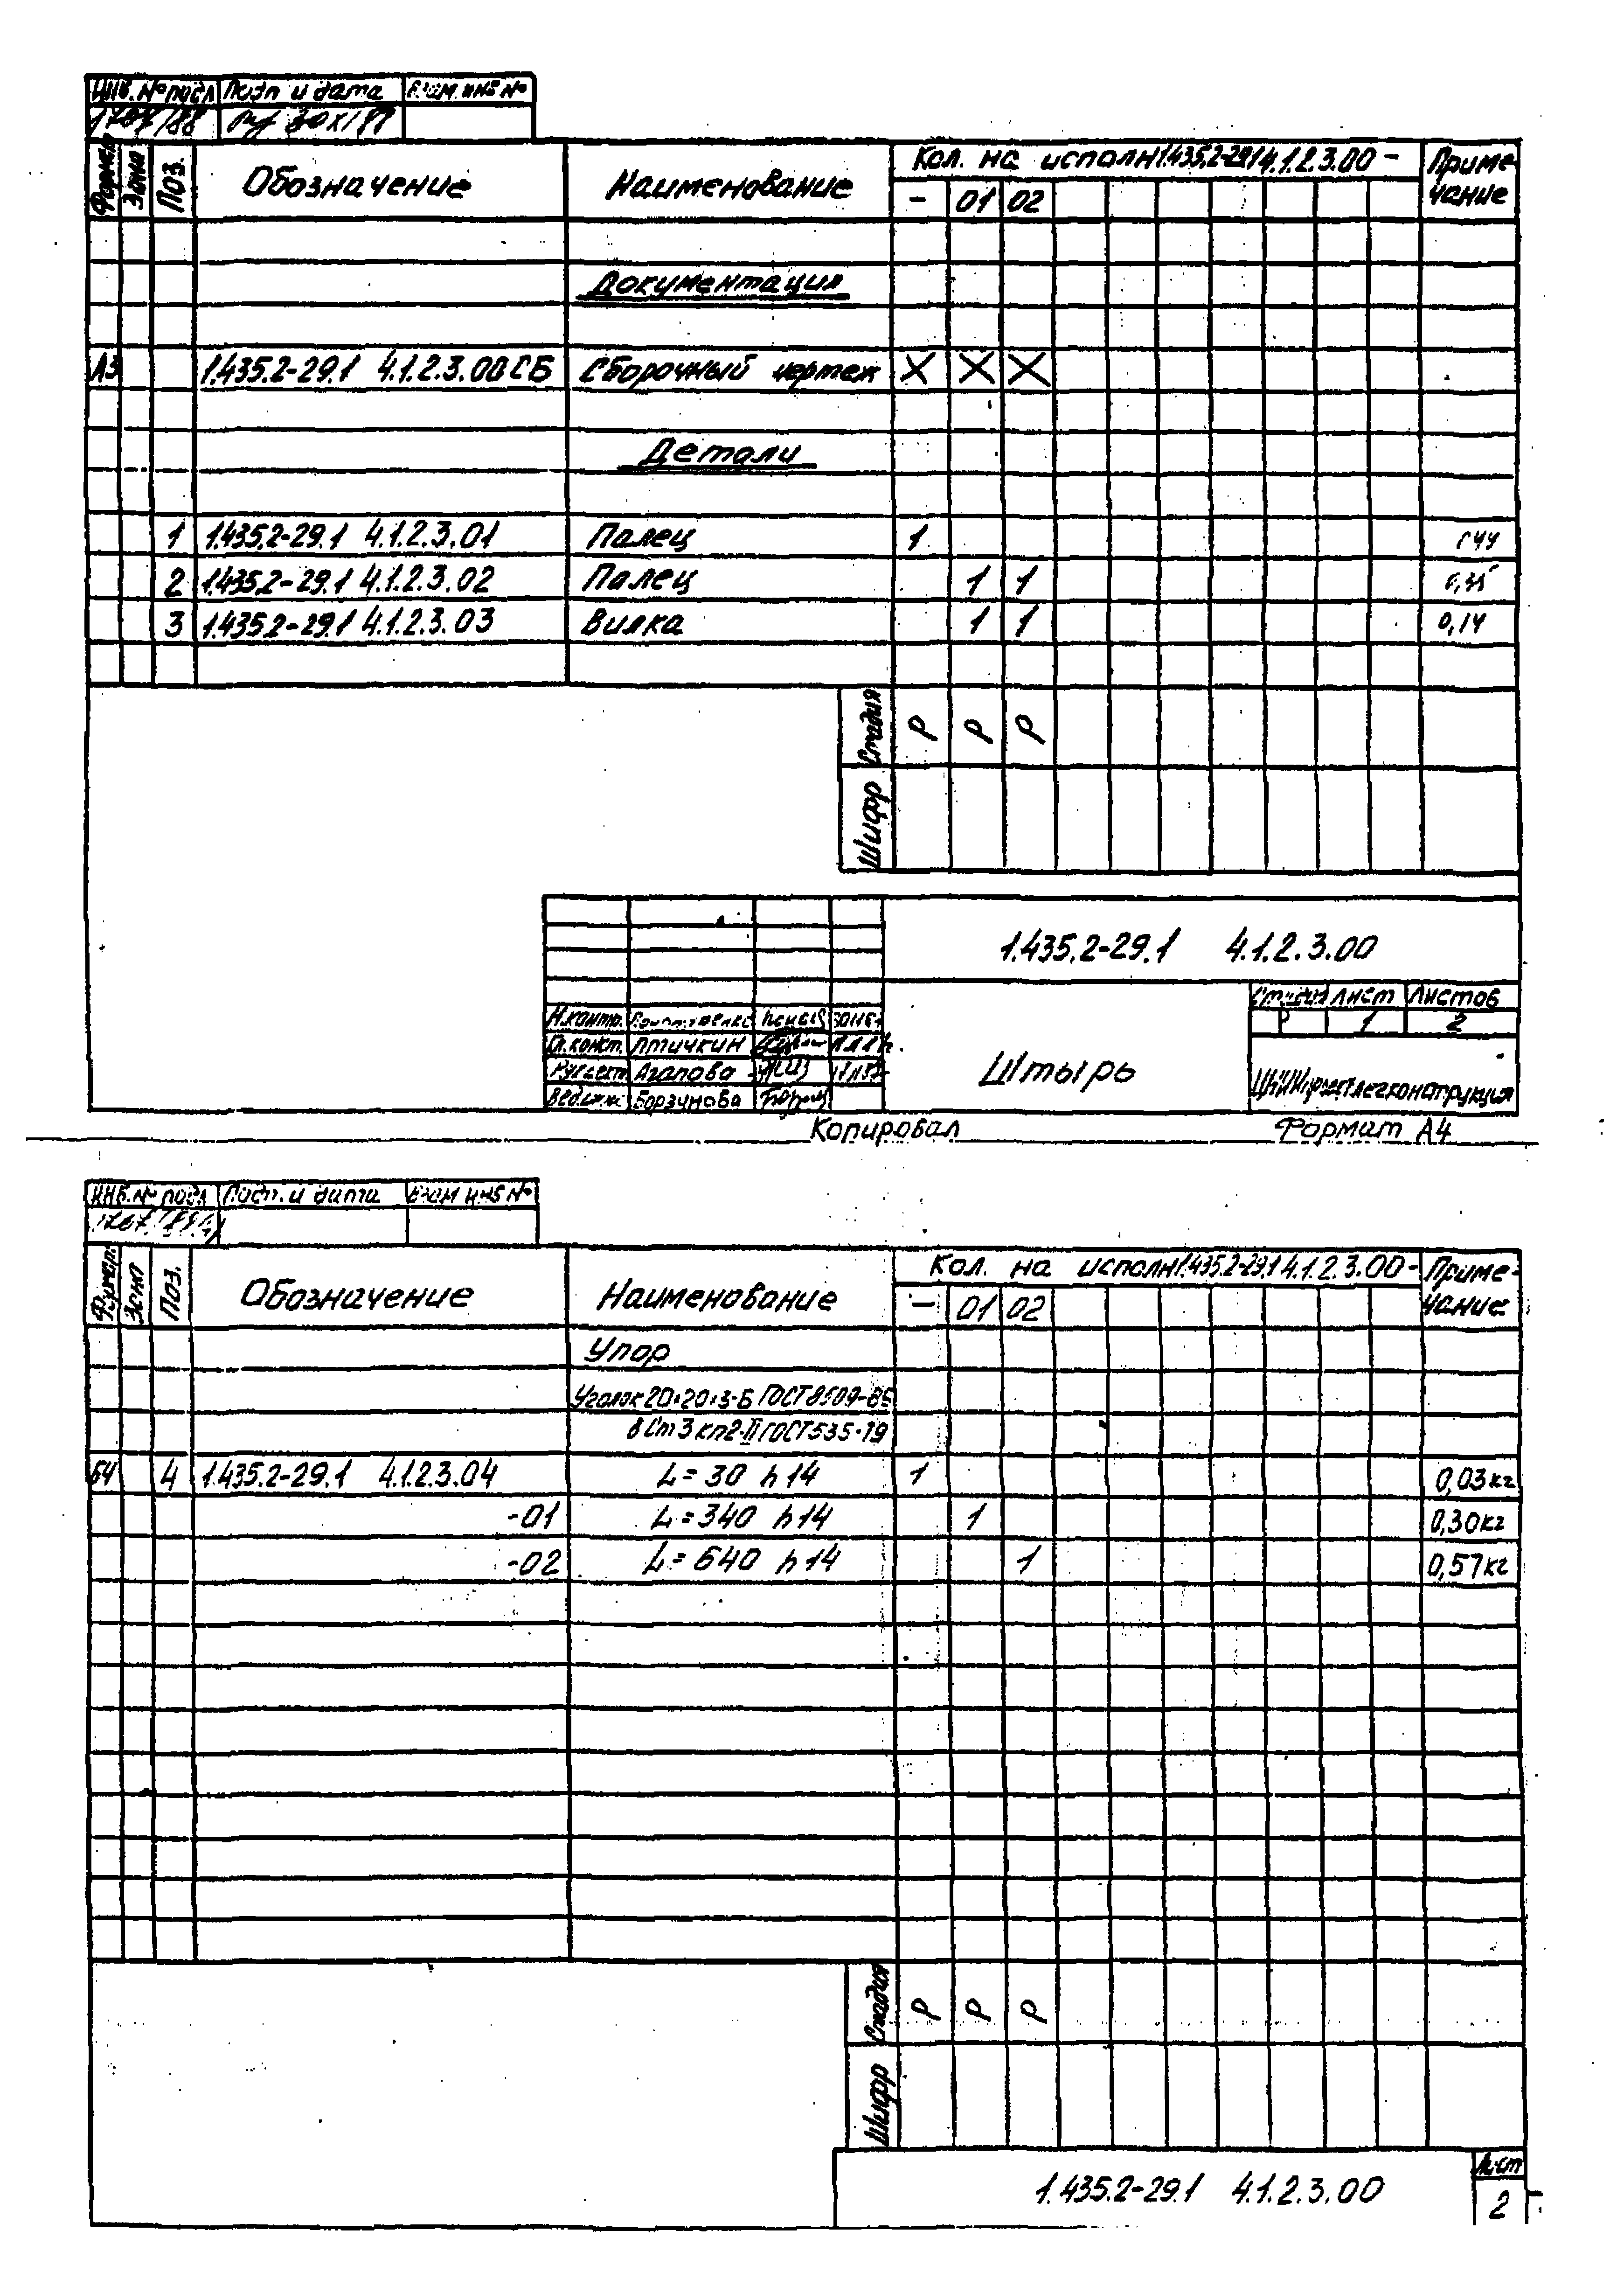 Инв. № подл Подп и дата Взам. инв №
Формат Зона Поз. Обозначение Наименование Кол. на исполн 1.435.2-29.1 4.1.2.3.00 - Приме-
- 01 02 чание
Документация
А3 1.435.2-29.1 4.1.2.3.00 СБ Сборочный чертеж X X X
Детали
1 1.435.2-29.1 4.1.2.3.01 Палец 1
2 1.435.2-29.1 4.1.2.3.02 Палец 1 1
3 1.435.2-29.1 4.1.2.3.03 Вилка 1 1 0,14
Стадия Р Р Р
Шифр
1.435.2-29.1 4.1.2.3.00
Стадия Лист Листов
Р 1 2
Н.контр.
Гл. конст. Птичкин
Рук.сект Агапова
Вед.инж Борзунова
Штырь
Копировал Формат А4
Инв. № подл Подп. и дата Взам инв №
Формат Зона Поз. Обозначение Наименование Кол. на исполн 1.435.2-29.1 4.1.2.3.00 - Приме-
- 01 02 чание
Упор
Уголок 20×20×3-Б ГОСТ 8509-86
в Ст 3 кп2-II ГОСТ 535-79
БЧ 4 1.435.2-29.1 4.1.2.3.04 L= 30 h14 1 0,03кг
-01 L=340 h14 1 0,30кг
-02 L= 640 h14 1 0,57кг
Стадия Р Р Р
Шифр
1.435.2-29.1 4.1.2.3.00
Лист
2